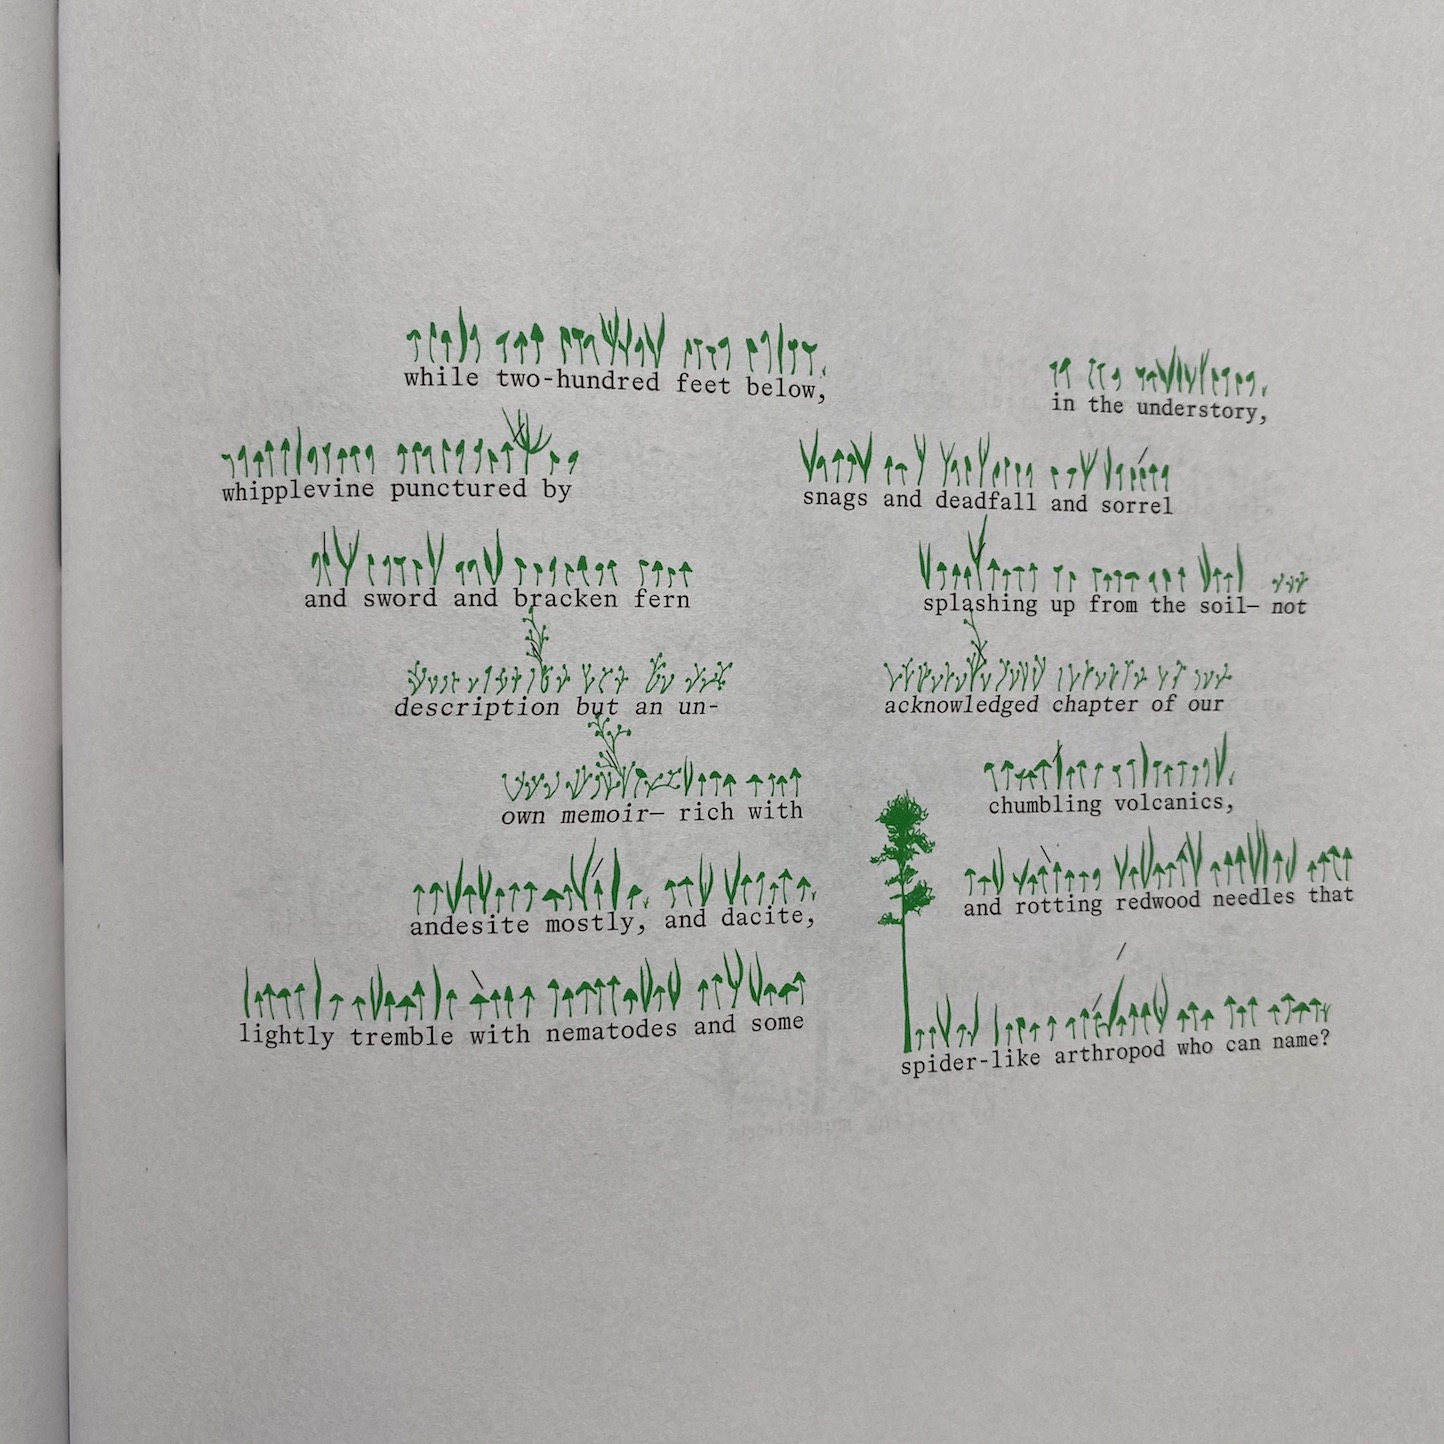 while two-hundred feet below,
in the understory,
whipplevine punctured by
snags and deadfall and sorrel
and sword and bracken fern
splashing up from the soil— not
description but an un-
acknowledged chapter of our
own memoir— rich with
chumbling volcanics,
andesite mostly, and dacite,
and rotting redwood needles that
lightly tremble with nematodes and some
spider-like arthropod who can name?